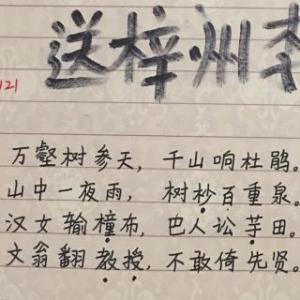 送梓州李
121
万壑树参天，千山响杜鹃。
山中一夜雨，树杪百重泉。
汉女输橦布，巴人讼芋田。
文翁翻教授，不敢倚先贤。